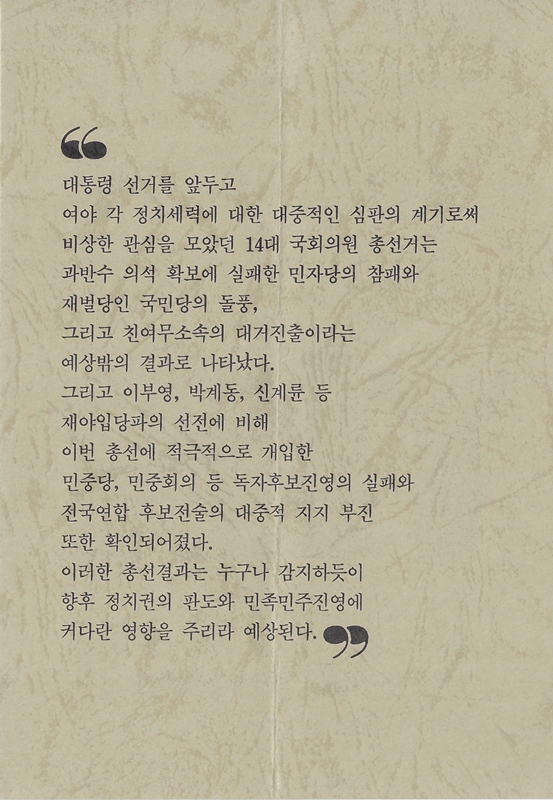 “
대통령 선거를 앞두고
여야 각 정치세력에 대한 대중적인 심판의 계기로써
비상한 관심을 모았던 14대 국회의원 총선거는
과반수 의석 확보에 실패한 민자당의 참패와
재벌당인 국민당의 돌풍,
그리고 친여무소속의 대거진출이라는
예상밖의 결과로 나타났다.
그리고 이부영, 박계동, 신계륜 등
재야입당파의 선전에 비해
이번 총선에 적극적으로 개입한
민중당, 민중회의 등 독자후보진영의 실패와
전국연합 후보전술의 대중적 지지 부진
또한 확인되어졌다.
이러한 총선결과는 누구나 감지하듯이
향후 정치권의 판도와 민족민주진영에
커다란 영향을 주리라 예상된다. ”